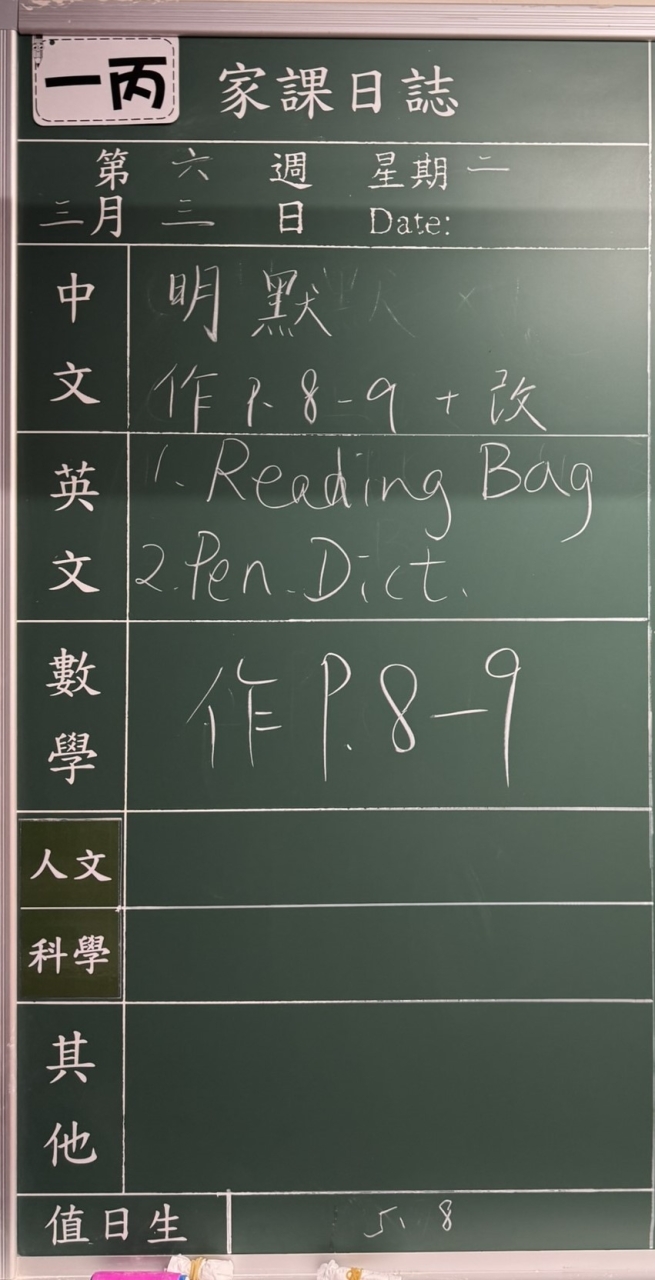 一丙 家課日誌
第 六 週 星期 二
三月 三 日 Date:
中文 明 默
作 P. 8-9 + 改
英文 1. Reading Bag
2. Pen. Dict.
數學 作 P. 8-9
人文
科學
其他
值日生 5、8